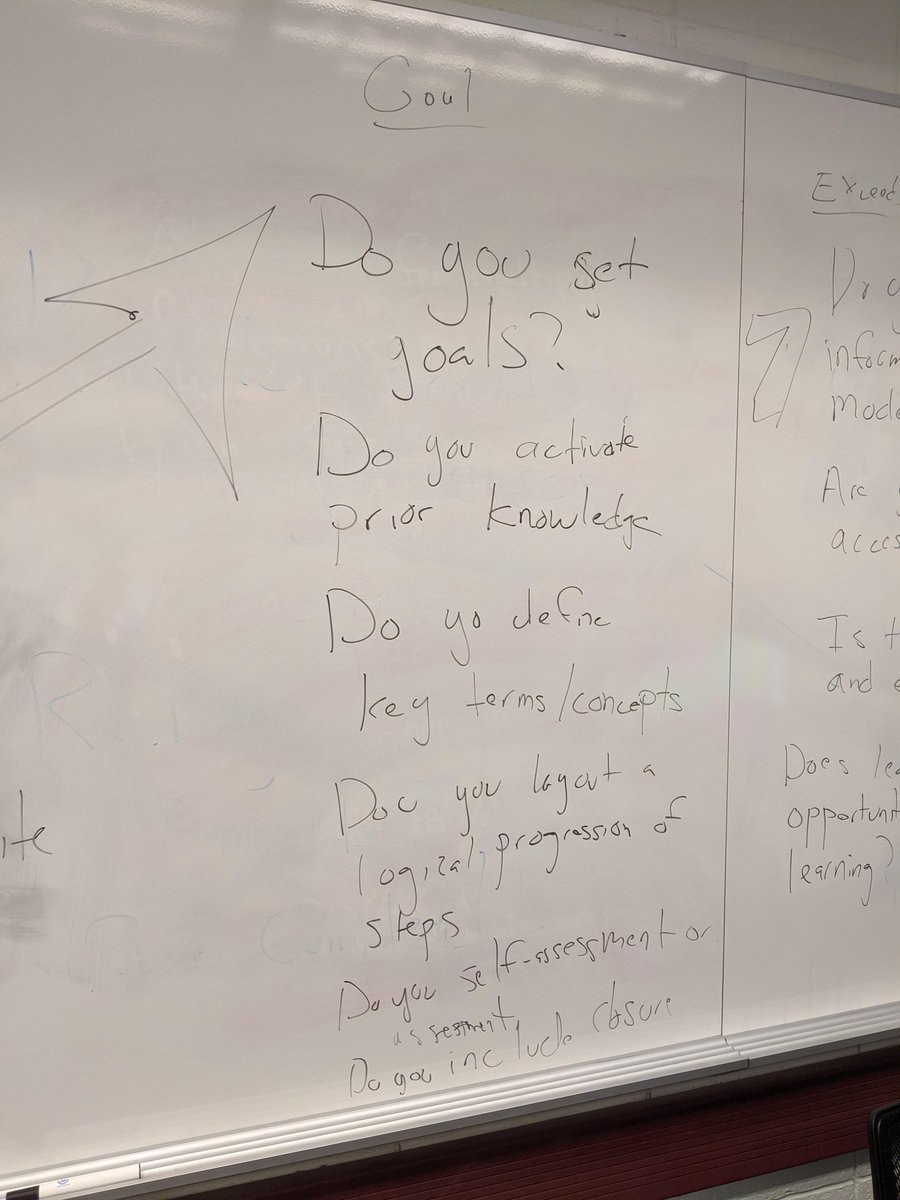 Goal
Do you set
goals?
Do you activate
prior knowledge
Do yo define
key terms/concepts
Doo you layout a
logical progression of
steps
Do you self-assessment or
assessment,
Do you include closure
Exceed
Do
inform
Mode
Are
acces
Is t
and
Does lea
opportunit
learning?
ite